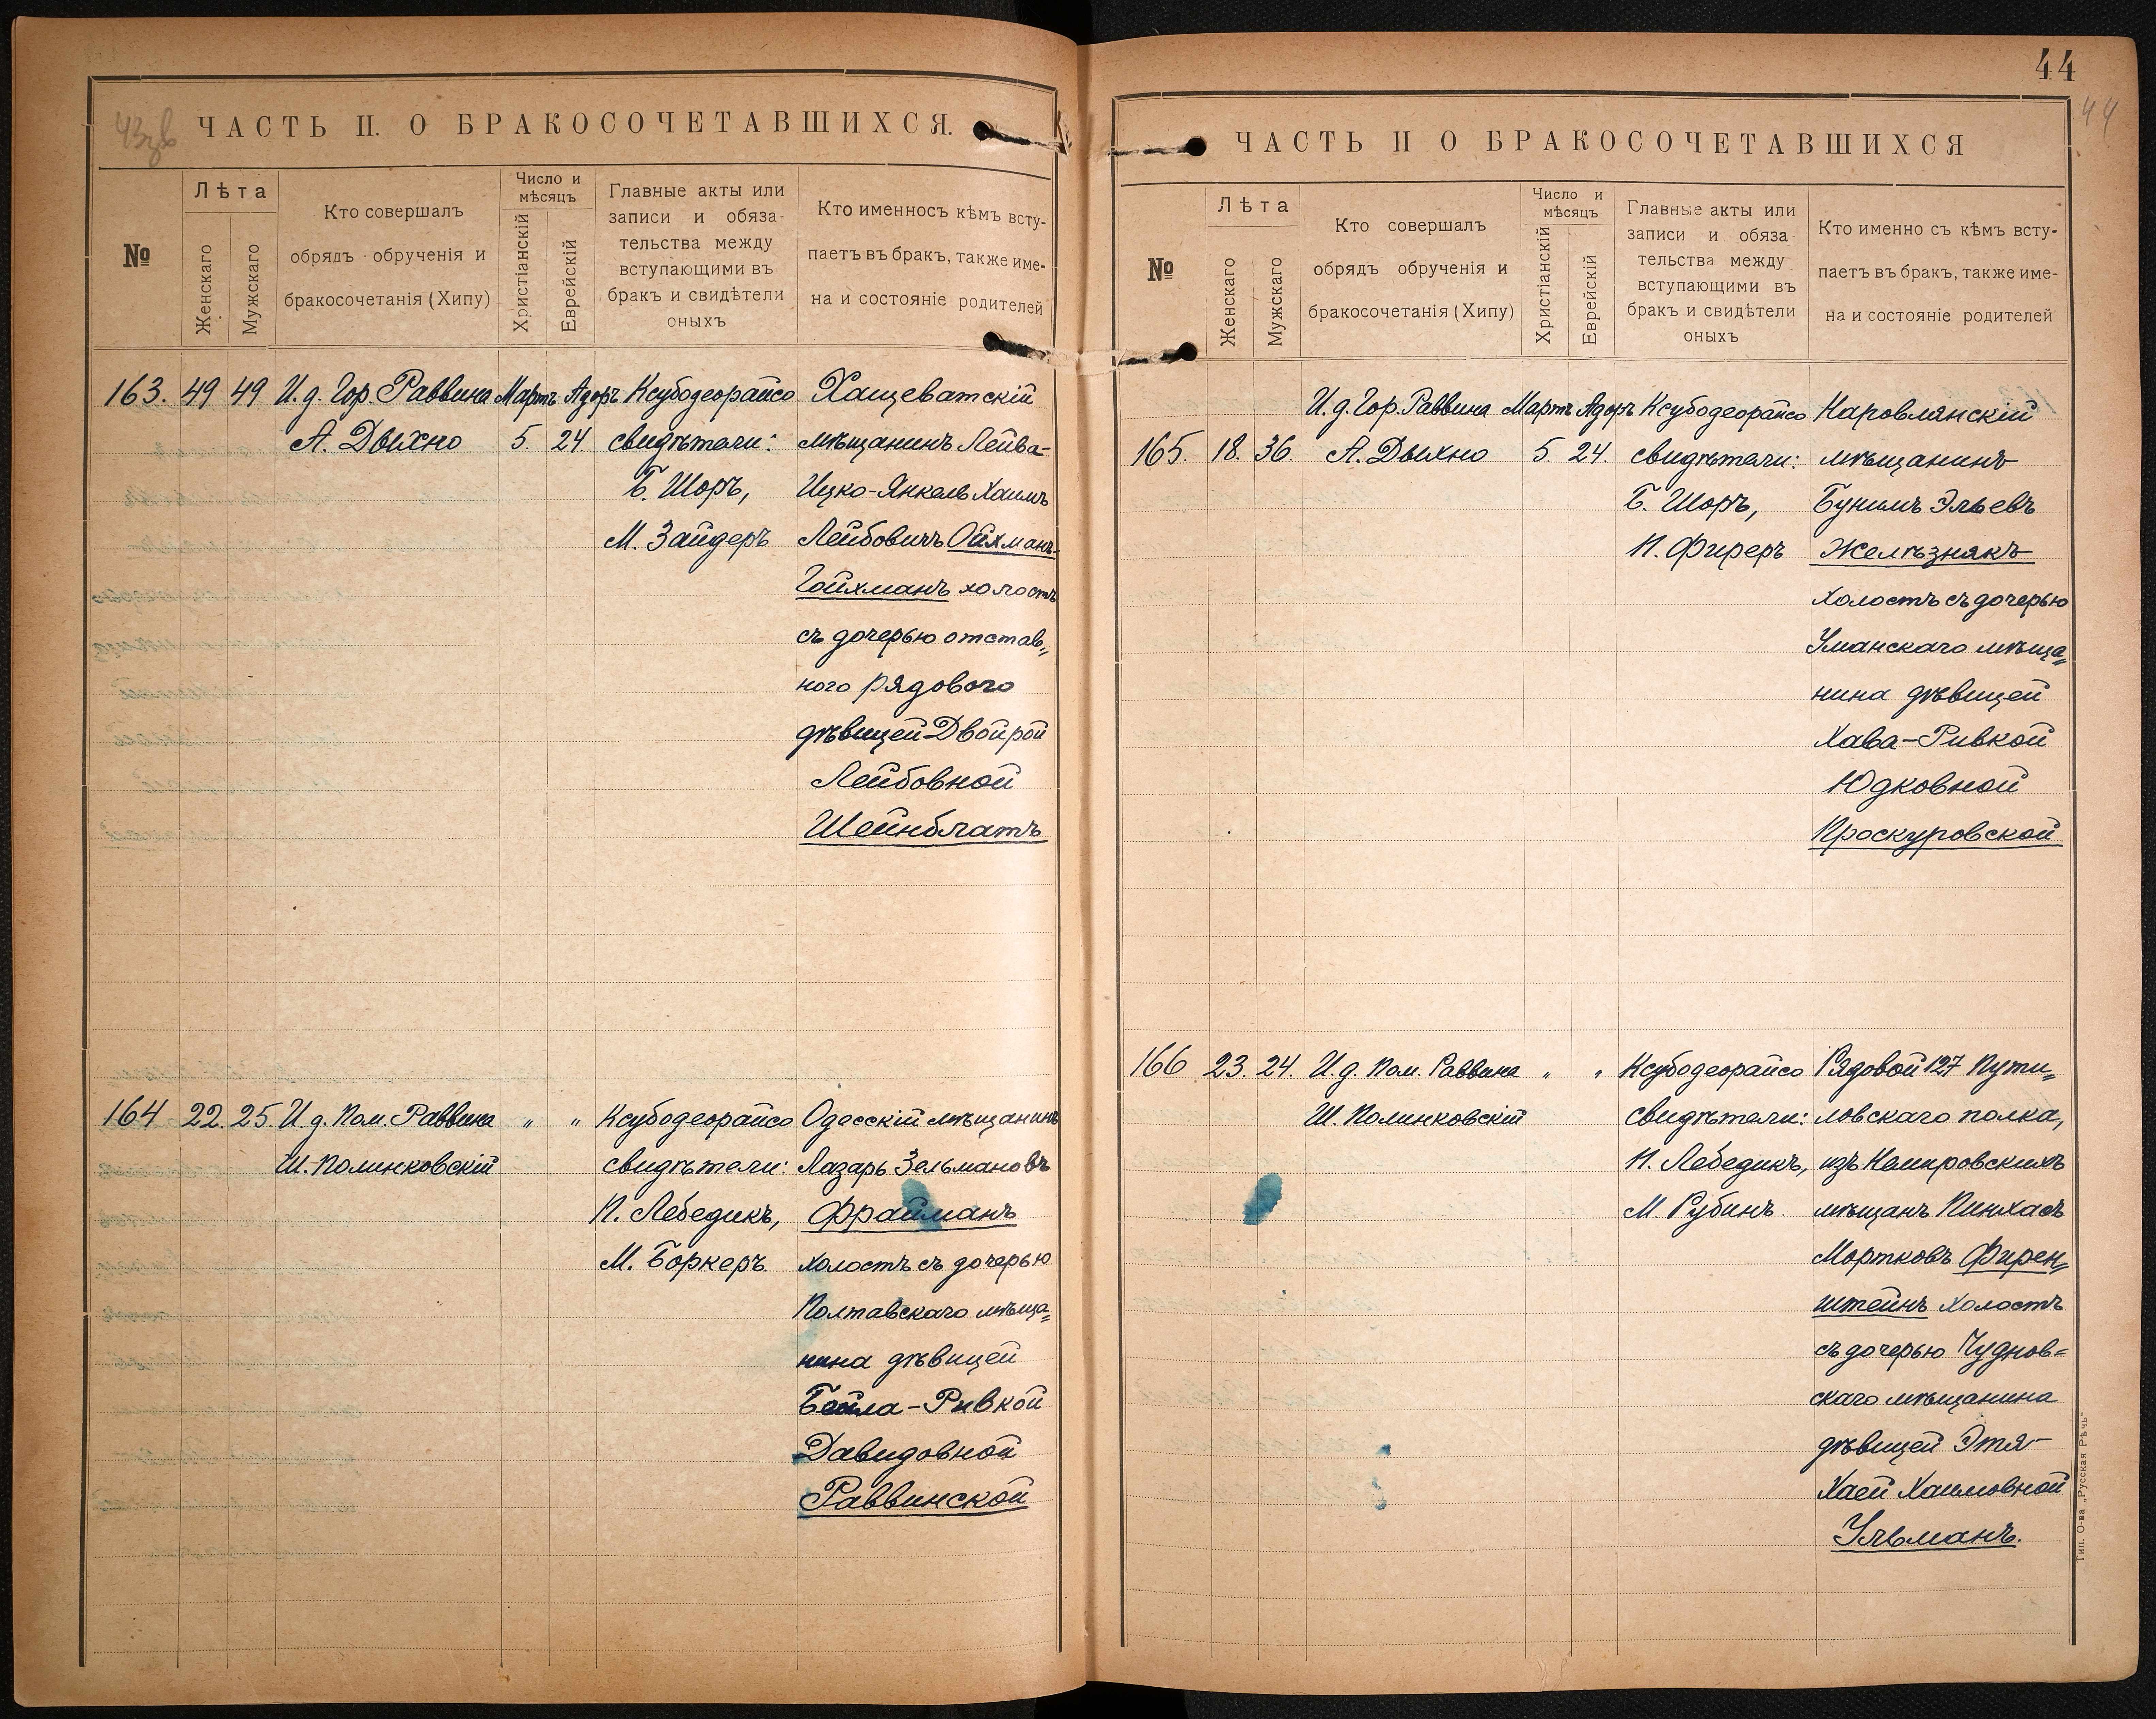 43зв
ЧАСТЬ II. О БРАКОСОЧЕТАВШИХСЯ.
№
Лѣта
Женскаго
Мужскаго
Кто совершалъ
обрядъ обрученія и
бракосочетанія (Хипу)
Число и
мѣсяцъ
Христіанскій
Еврейскій
Главные акты или
записи и обяза-
тельства между
вступающими въ
бракъ и свидѣтели
оныхъ
Кто именносъ кѣмъ всту-
паетъ въ бракъ, также име-
на и состояніе родителей
163. 49 49 И. д. Гор. Раввина Мартъ Адоръ Ксубодеорайсо Хащеватскій
А. Дыхно 5. 24. свидѣтели: мѣщанинъ Лейва-
Б. Шоръ, Ицко-Янкель Хаимъ
М. Зайдеръ Лейбовичъ Ойхманъ-
Гойхманъ холостъ
съ дочерью отстав„
ного рядового
дѣвицей Двойрой
Лейбовной
Шейнблатъ
164 22. 25. И. д. Пом. Раввина „ „ Ксубодеорайсо Одесскій мѣщанинъ
Ш. Полинковскій свидѣтели: Лазарь Зельмановъ
П. Лебедикъ, Фрайманъ
М. Боркеръ. холостъ съ дочерью
Полтавскаго мѣща„
нина дѣвицей
Бейла-Ривкой
Давидовной
Раввинской
44
44
ЧАСТЬ II О БРАКОСОЧЕТАВШИХСЯ
№
Лѣта
Женскаго
Мужскаго
Кто совершалъ
обрядъ обрученія и
бракосочетанія (Хипу)
Число и
мѣсяцъ
Христіанскій
Еврейскій
Главные акты или
записи и обяза
тельства между
вступающими въ
бракъ и свидѣтели
оныхъ
Кто именно съ кѣмъ всту-
паетъ въ бракъ, также име-
на и состояніе родителей
И. д. Гор. Раввина Мартъ Адоръ Ксубодеорайсо Наровлянскій
165. 18. 36. А. Дыхно 5 24. свидѣтели: мѣщанинъ
Б. Шоръ, Бунимъ Эльевъ
П. Фиреръ Желѣзнякъ
холостъ съ дочерью
Уманскаго мѣща„
нина дѣвицей
Хава-Ривкой
Юдковной
Проскуровской
166 23. 24. И. д. Пом. Раввина „ „ Ксубодеорайсо Рядовой 127 Пути„
Ш. Полинковскій свидѣтели: ловскаго полка,
П. Лебедикъ, изъ Немировскихъ
М. Рубинъ. мѣщанъ Пинхасъ
Мортковъ Фирен„
штейнъ холостъ
съ дочерью Чуднов=
скаго мѣщанина
дѣвицей Этя-
Хаей Хаимовной
Ульманъ.
Тип. О-ва „Русская Рѣчь"